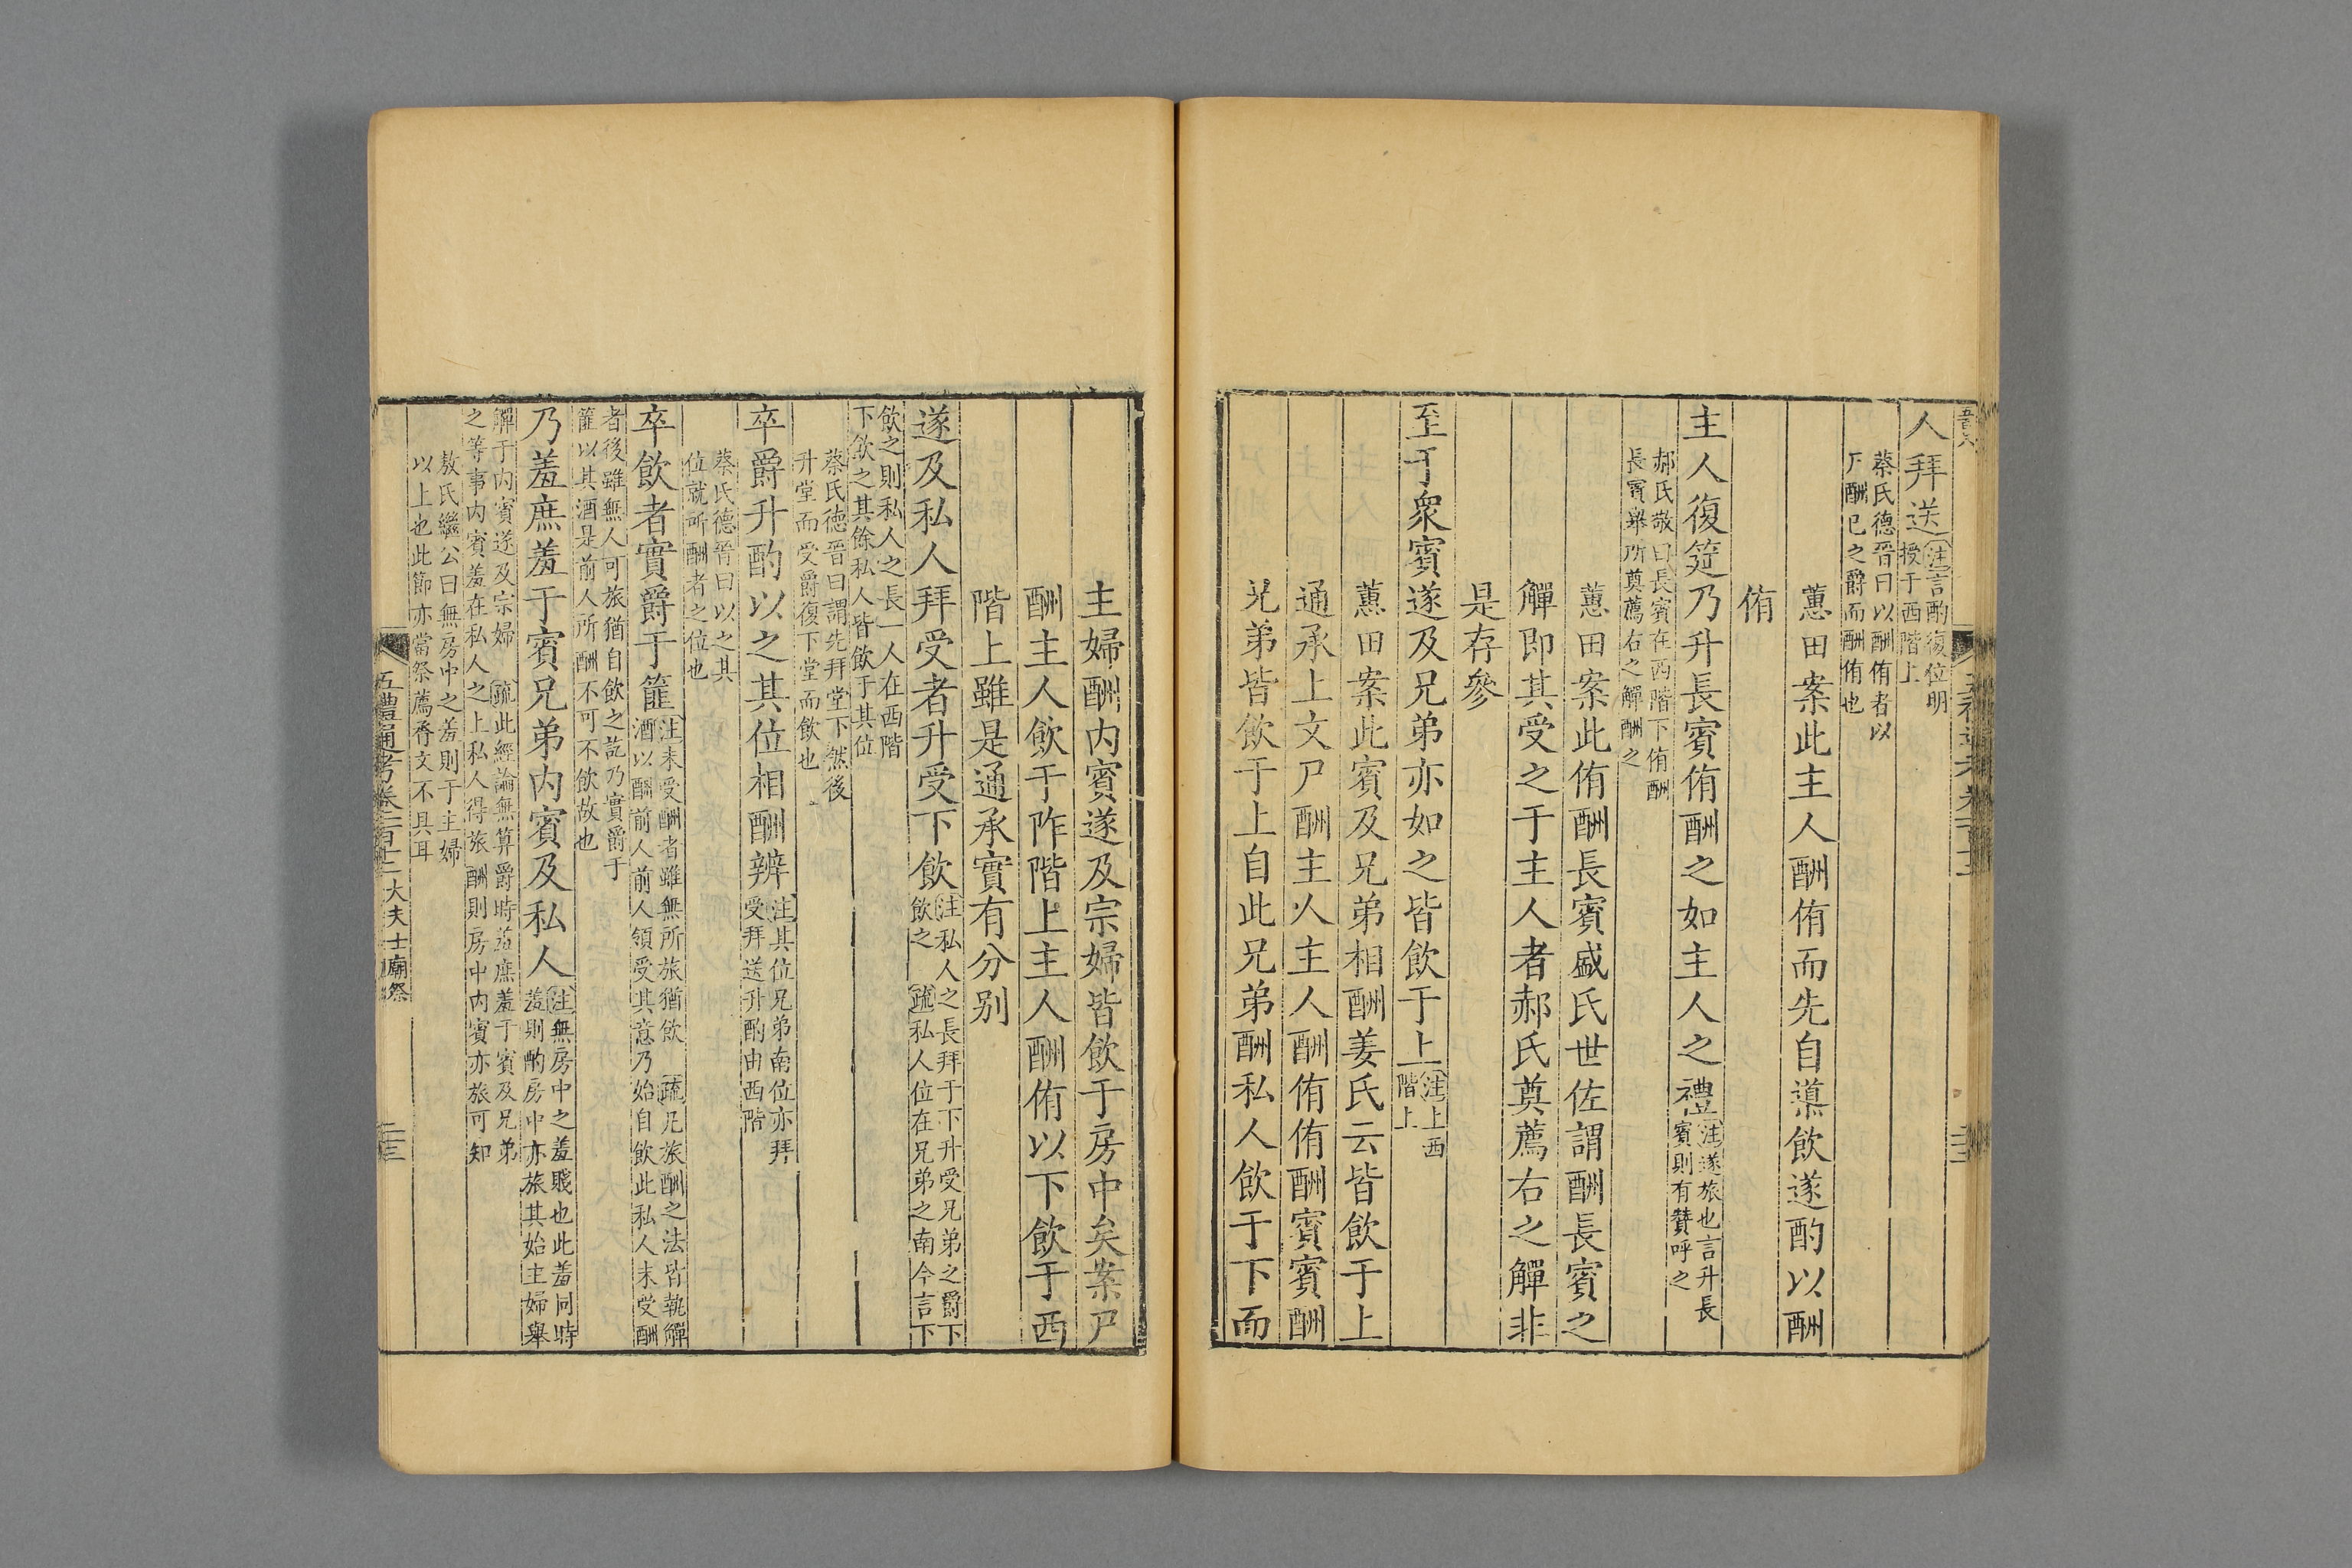 人拜送注言酌復位明
授于西階上
蔡氏德晉曰以酬侑者以
尸酬己之爵而酬侑也
蕙田案此主人酬侑而先自導飲遂酌以酬
侑
主人復筵乃升長賓侑酬之如主人之禮注遂旅也言升長
賓則有贊呼之
郝氏敬曰長賓在西階下侑酬
長賓舉所奠薦右之觶酬之
蕙田案此侑酬長賓盛氏世佐謂酬長賓之
觶即其受之于主人者郝氏奠薦右之觶非
是存參
至于衆賓遂及兄弟亦如之皆飲于上注上西
階上
蕙田案此賓及兄弟相酬姜氏云皆飲于上
通承上文尸酬主人主人酬侑侑酬賓賓酬
兄弟皆飲于上自此兄弟酬私人飲于下而
主婦酬内賓遂及宗婦皆飲于房中矣案尸
酬主人飲于阼階上主人酬侑以下飲于西
階上雖是通承實有分別
遂及私人拜受者升受下飲注私人之長拜于下升受兄弟之爵下
飲之 疏私人位在兄弟之南今言下
飲之則私人之長一人在西階
下飲之其餘私人皆飲于其位
蔡氏德晉曰謂先拜堂下然後
升堂而受爵復下堂而飲也
卒爵升酌以之其位相酬辨注其位兄弟南位亦拜
受拜送升酌由西階
蔡氏德晉曰以之其
位就所酬者之位也
卒飲者實爵于篚注未受酬者雖無所旅猶飲 疏凡旅酬之法皆執觶
酒以酬前人前人領受其意乃始自飲此私人未受酬
者後雖無人可旅猶自飲之訖乃實爵于
篚以其酒是前人所酬不可不飲故也
乃羞庶羞于賓兄弟内賓及私人注無房中之羞賤也此羞同時
羞則酌房中亦旅其始主婦舉
觶于内賓遂及宗婦 疏此經論無算爵時羞庶羞于賓及兄弟
之等事内賓羞在私人之上私人得旅酬則房中内賓亦旅可知
敖氏繼公曰無房中之羞則于主婦
以上也此節亦當祭薦脀文不具耳
五禮通考卷一百十二 大夫士廟祭 二三